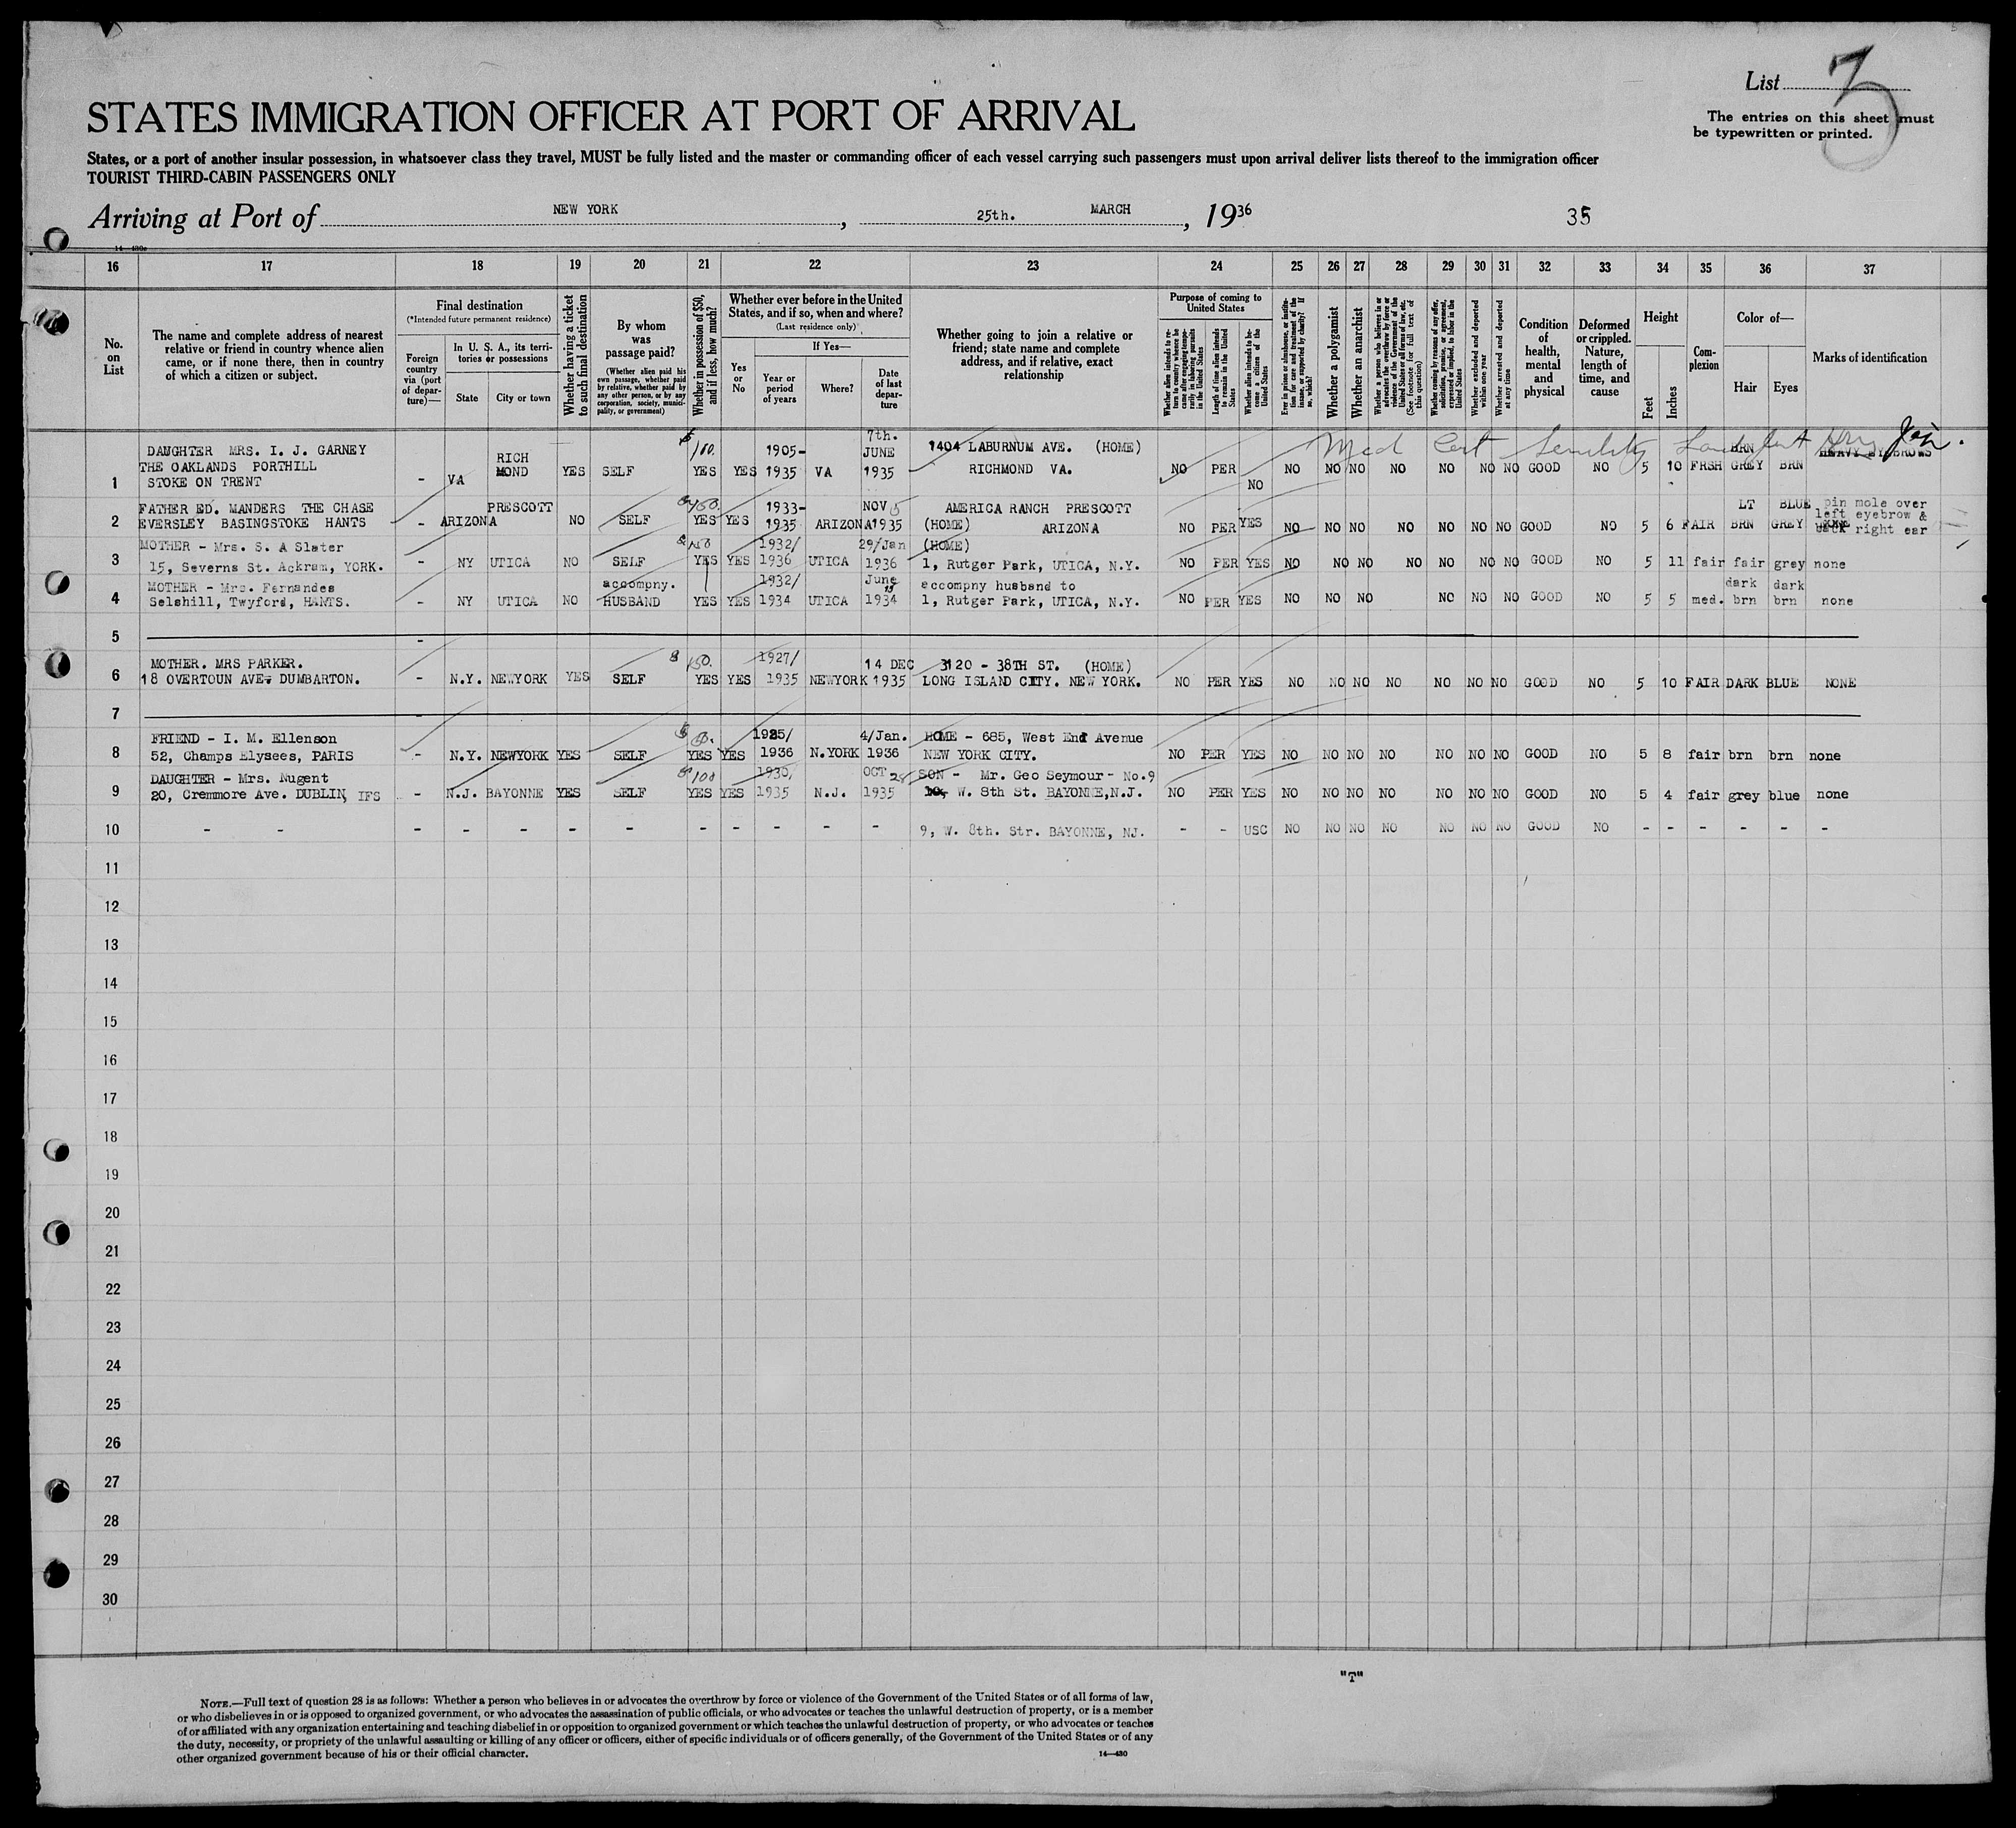 List 3
The entries on this sheet must
be typewritten or printed.
STATES IMMIGRATION OFFICER AT PORT OF ARRIVAL
States, or a port of another insular possession, in whatsoever class they travel, MUST be fully listed and the master or commanding officer of each vessel carrying such passengers must upon arrival deliver lists thereof to the immigration officer
TOURIST THIRD-CABIN PASSENGERS ONLY
Arriving at Port of NEW YORK, 25th. MARCH, 1936 35
16 17 18 19 20 21 22 23 24 25 26 27 28 29 30 31 32 33 34 35 36 37
No. on List
The name and complete address of nearest
relative or friend in country whence alien
came, or if none there, then in country
of which a citizen or subject.
Final destination
(*Intended future permanent residence)
Foreign country via (port of departure)—
In U. S. A., its territories or possessions
State
City or town
Whether having a ticket to such final destination
By whom was passage paid?
(Whether alien paid his own passage, whether paid by relative, whether paid by any other person, or by any corporation, society, municipality, or government)
Whether in possession of $50, and if less, how much?
Whether ever before in the United
States, and if so, when and where?
(Last residence only)
Yes or No
If Yes—
Year or period of years
Where?
Date of last departure
Whether going to join a relative or
friend; state name and complete
address, and if relative, exact
relationship
Purpose of coming to United States
Length of time alien intends to remain in the United States
Whether alien intends to become a citizen of the United States
Whether a polygamist
Whether an anarchist
Whether excluded and deported within one year
Whether arrested and deported at any time
Condition of health, mental and physical
Deformed or crippled. Nature, length of time, and cause
Height
Feet
Inches
Complexion
Color of—
Hair
Eyes
Marks of identification
Med Cert Senility
1 DAUGHTER MRS. I. J. GARNEY
THE OAKLANDS PORTHILL
STOKE ON TRENT
- VA RICHMOND YES SELF $100. YES YES 1905-1935 VA 7th. JUNE 1935
1404 LABURNUM AVE. (HOME)
RICHMOND VA.
NO PER NO NO NO NO NO NO NO NO GOOD NO 5 10 FRSH BRN GREY BRN HEAVY EYEBROWS
2 FATHER ED. MANDERS THE CHASE
EVERSLEY BASINGSTOKE HANTS
- ARIZONA PRESCOTT NO SELF YES YES 1933-1935 ARIZONA NOV 5 1935
AMERICA RANCH PRESCOTT
(HOME) ARIZONA
NO PER YES NO NO NO NO NO NO NO GOOD NO 5 6 FAIR LT BRN BLUE GREY pin mole over
left eyebrow &
back right ear
3 MOTHER - Mrs. S. A Slater
15, Severns St. Ackram, YORK.
- NY UTICA NO SELF YES YES 1932/1936 UTICA 29/Jan 1936
(HOME)
1, Rutger Park, UTICA, N.Y.
NO PER YES NO NO NO NO NO NO NO GOOD NO 5 11 fair fair grey none
4 MOTHER - Mrs. Fernandes
Selshill, Twyford, HANTS.
- NY UTICA NO accompny. HUSBAND YES YES 1932/1934 UTICA June 15 1934
accompny husband to
1, Rutger Park, UTICA, N.Y.
NO PER YES NO NO NO NO NO NO GOOD NO 5 5 med. dark brn dark brn none
5 -
6 MOTHER. MRS PARKER.
18 OVERTOUN AVE. DUMBARTON.
- N.Y. NEWYORK YES SELF $150. YES YES 1927/1935 NEWYORK 14 DEC 1935
3120 - 38TH ST. (HOME)
LONG ISLAND CITY. NEW YORK.
NO PER YES NO NO NO NO NO NO NO GOOD NO 5 10 FAIR DARK BLUE NONE
7 -
8 FRIEND - I. M. Ellenson
52, Champs Elysees, PARIS
- N.Y. NEWYORK YES SELF YES YES 1925/1936 N.YORK 4/Jan. 1936
HOME - 685, West End Avenue
NEW YORK CITY.
NO PER YES NO NO NO NO NO NO NO GOOD NO 5 8 fair brn brn none
9 DAUGHTER - Mrs. Nugent
20, Cremmore Ave. DUBLIN, IFS
- N.J. BAYONNE YES SELF $100 YES YES 1930/1935 N.J. OCT 28 1935
SON - Mr. Geo Seymour - No.9
W. 8th St. BAYONNE, N.J.
NO PER YES NO NO NO NO NO NO NO GOOD NO 5 4 fair grey blue none
10 - - - - - - - - - - - - 9, W. 8th. Str. BAYONNE, NJ. - - USC NO NO NO NO NO NO NO GOOD NO - - - - - -
11
12
13
14
15
16
17
18
19
20
21
22
23
24
25
26
27
28
29
30
"T"
NOTE.—Full text of question 28 is as follows: Whether a person who believes in or advocates the overthrow by force or violence of the Government of the United States or of all forms of law,
or who disbelieves in or is opposed to organized government, or who advocates the assassination of public officials, or who advocates or teaches the unlawful destruction of property, or is a member
of or affiliated with any organization entertaining and teaching disbelief in or opposition to organized government or which teaches the unlawful destruction of property, or who advocates or teaches
the duty, necessity, or propriety of the unlawful assaulting or killing of any officer or officers, either of specific individuals or of officers generally, of the Government of the United States or of any
other organized government because of his or their official character.
14—430